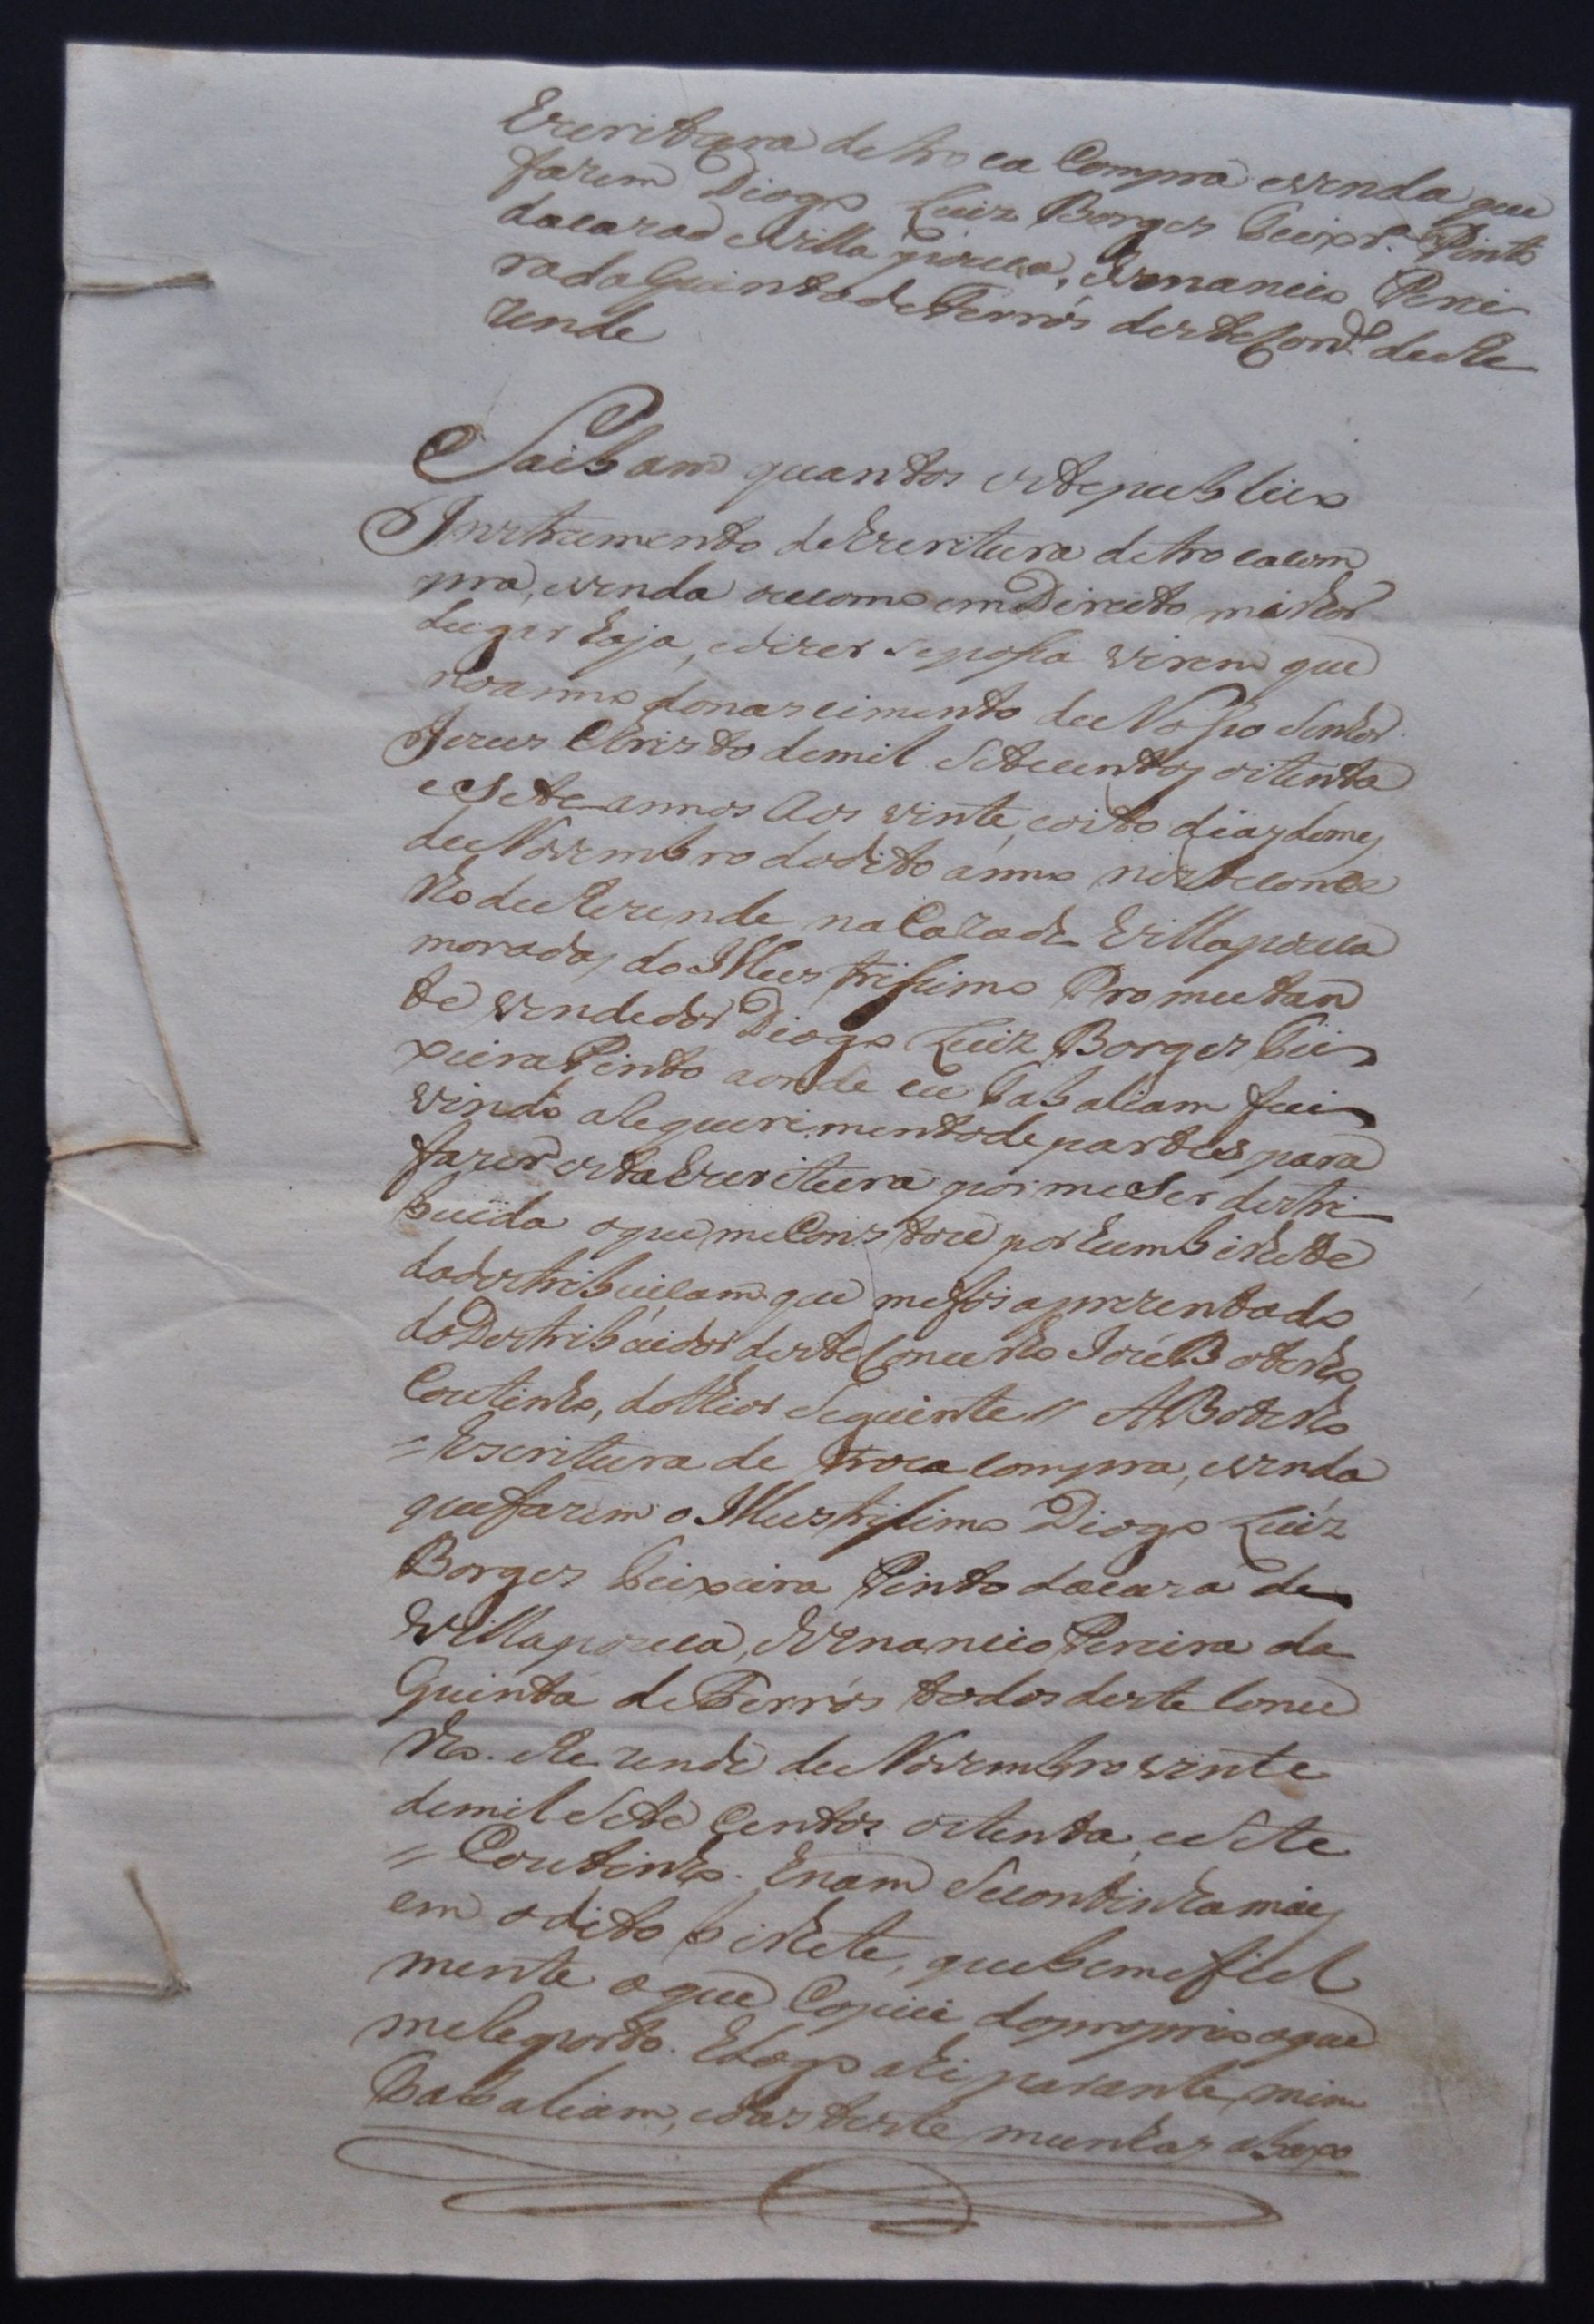 Escritura de troca Compra evenda que
fazem Diogo Luiz Borges Teixr.ª Pinto
dacaza de Villa pouca, eVenancio Perei
ra da Quinta de Ferrós deste Con.º de Re
zende
Saibam quantos este publico
Instrumento de Escritura de troca com
pra, evenda ou como em Direito milhor
Lugar haja, edizer se possa virem que
no anno do nascimento de Nosso Senhor
Jezus Christo de mil Setecentos oitenta
e Sete annos Aos vinte, eoito dias do mes
de Novembro do dito anno neste conce
lho de Rezende na Caza de Villa pouca
moradas do Illustrissimo Promutan
te vendedor Diogo Luiz Borges Tei
xeira Pinto aonde eu Tabaliam fui
vindo a Requerimento de partes para
fazer esta Escritura por me Ser destri
buida o que me Constou por hum bilhete
da destribuicam que me foi aprezentado
do Destribuidor deste Concelho Jozé Botelho
Coutinho, do theor Seguinte // A Botelho
= Escritura de troca compra, evenda
que fazem o Illustrissimo Diogo Luiz
Borges Teixeira Pinto da caza de
Villa pouca, eVenancio Pereira da
Quinta de Ferrós todos deste Conce
lho. Rezende de Novembro vinte
de mil Sete Centos oitenta, eSete
= Coutinho. Enam Secontinha mais
em o dito bilhete, que bem efiel
mente o que Copiei do proprio aque
me Reporto. E logo ahi parante mim
Tabaliam, e das teste munhas abaxo